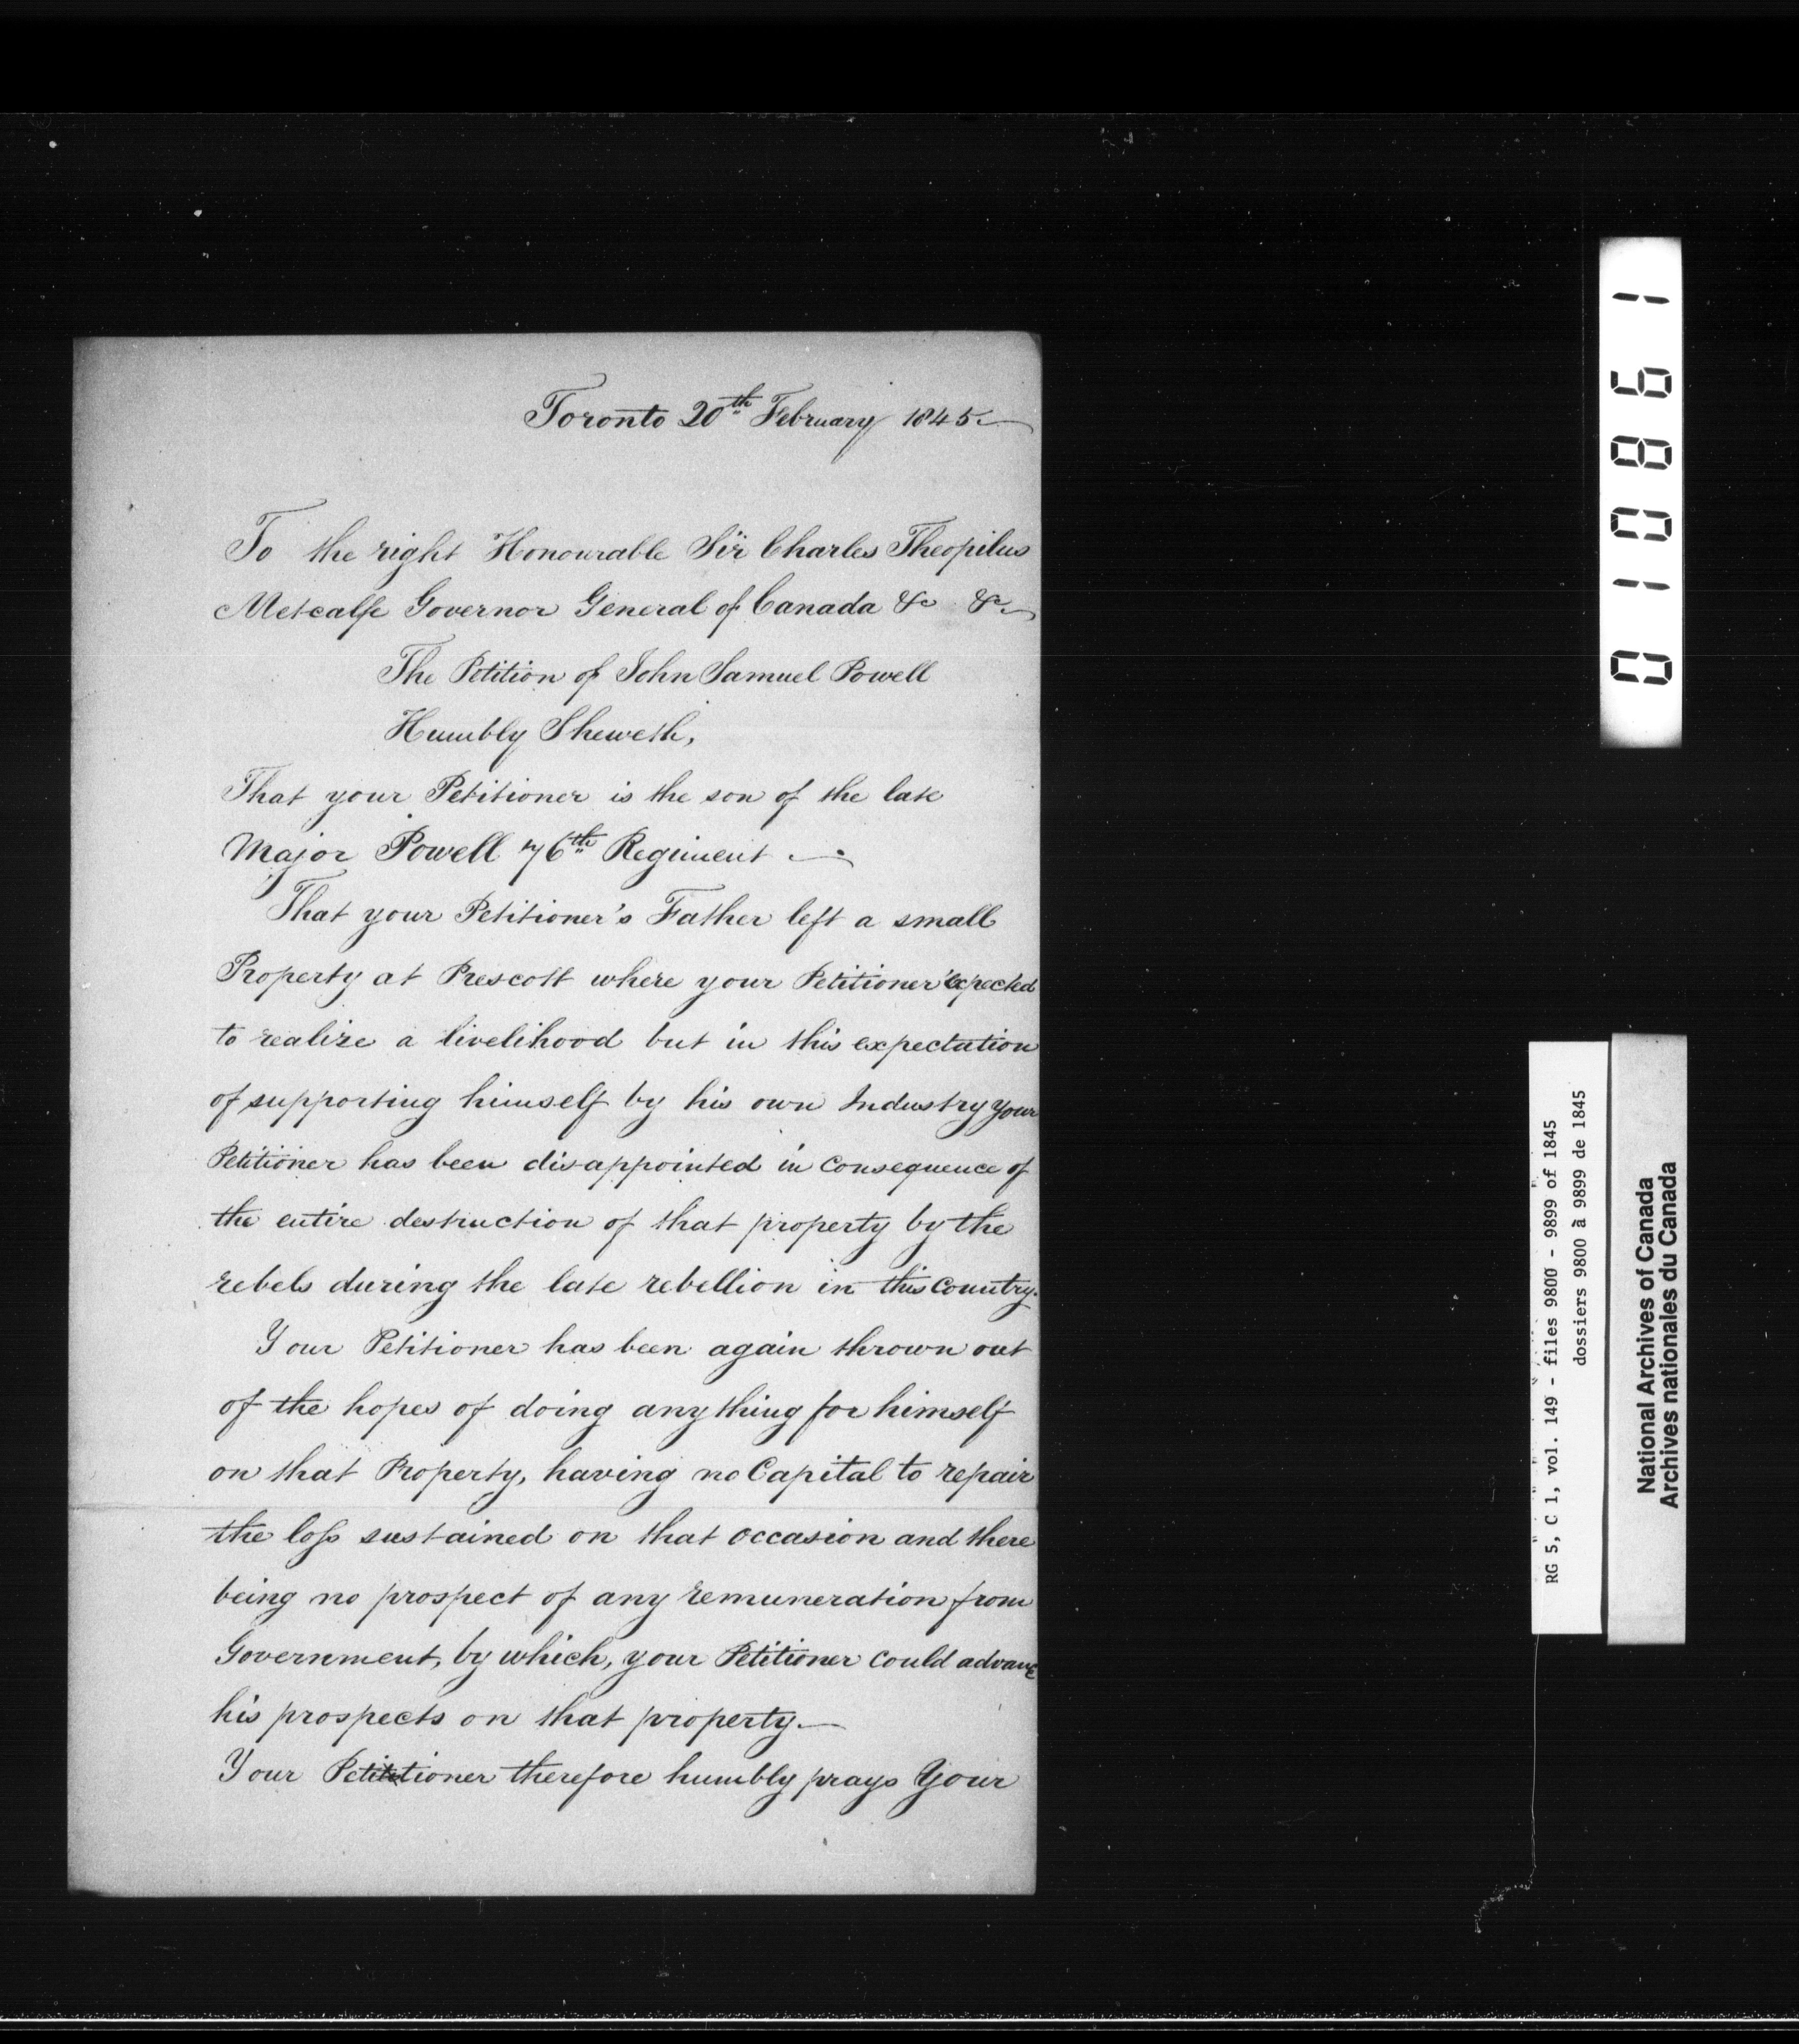 Toronto 20th February 1845.
To the right Honourable Sir Charles Theopilus
Metcalfe Governor General of Canada &c &c
The Petition of John Samuel Powell
Humbly Sheweth,
That your Petitioner is the son of the late
Major Powell 76th Regiment —
That your Petitioner's Father left a small
Property at Prescott where your Petitioner expected
to realize a livelihood but in this expectation
of supporting himself by his own Industry your
Petitioner has been disappointed in consequence of
the entire destruction of that property by the
rebels during the late rebellion in this Country.
Your Petitioner has been again thrown out
of the hopes of doing any thing for himself
on that Property, having no Capital to repair
the loss sustained on that occasion and there
being no prospect of any remuneration from
Government, by which, your Petitioner could advance
his prospects on that property.—
Your Petitioner therefore humbly prays Your
010861
RG 5, C 1, vol. 149 - files 9800 - 9899 of 1845
dossiers 9800 à 9899 de 1845
National Archives of Canada
Archives nationales du Canada